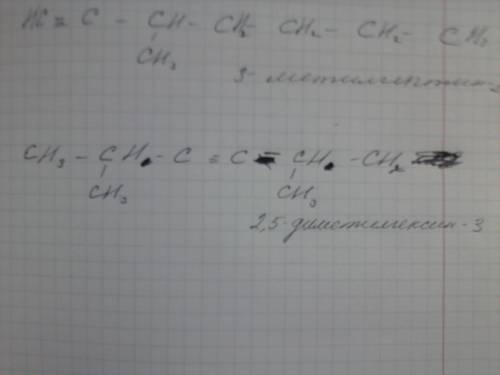 HC ≡ C - CH - CH₂ - CH₂ - CH₂ - CH₃
CH₃
3-метилгептин-
CH₃ - CH - C ≡ C - CH - CH₂
CH₃ CH₃
2,5-диметилгексин-3